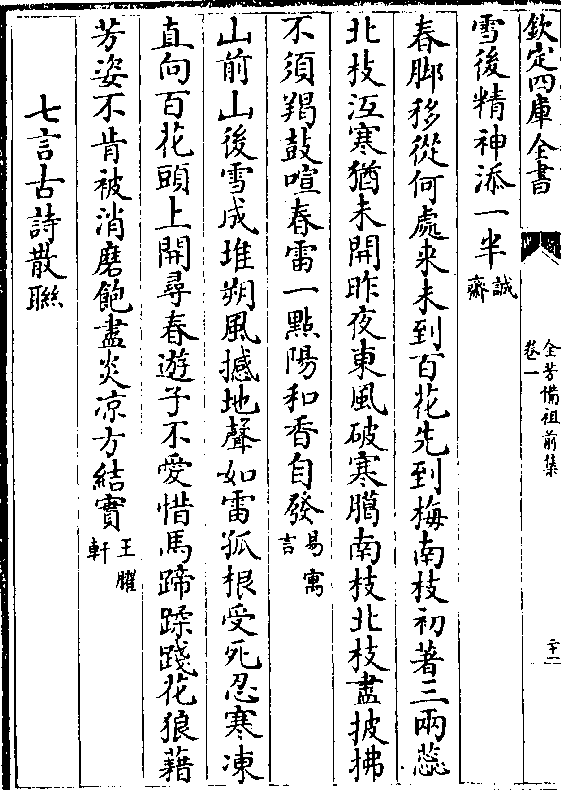 欽定四庫全書
全芳備祖前集
卷一
二十一
雪後精神添一半誠
齋
春脚移從何處来未到百花先到梅南枝初著三兩蕊
北枝沍寒猶未開昨夜東風破寒臈南枝北枝盡披拂
不須羯鼓喧春雷一點陽和香自發易寓
言
山前山後雪成堆朔風撼地聲如雷孤根受死忍寒凍
直向百花頭上開尋春遊子不愛惜馬蹄蹂踐花狼藉
芳姿不肯被消磨飽盡炎凉方結實王臞
軒
七言古詩散聯